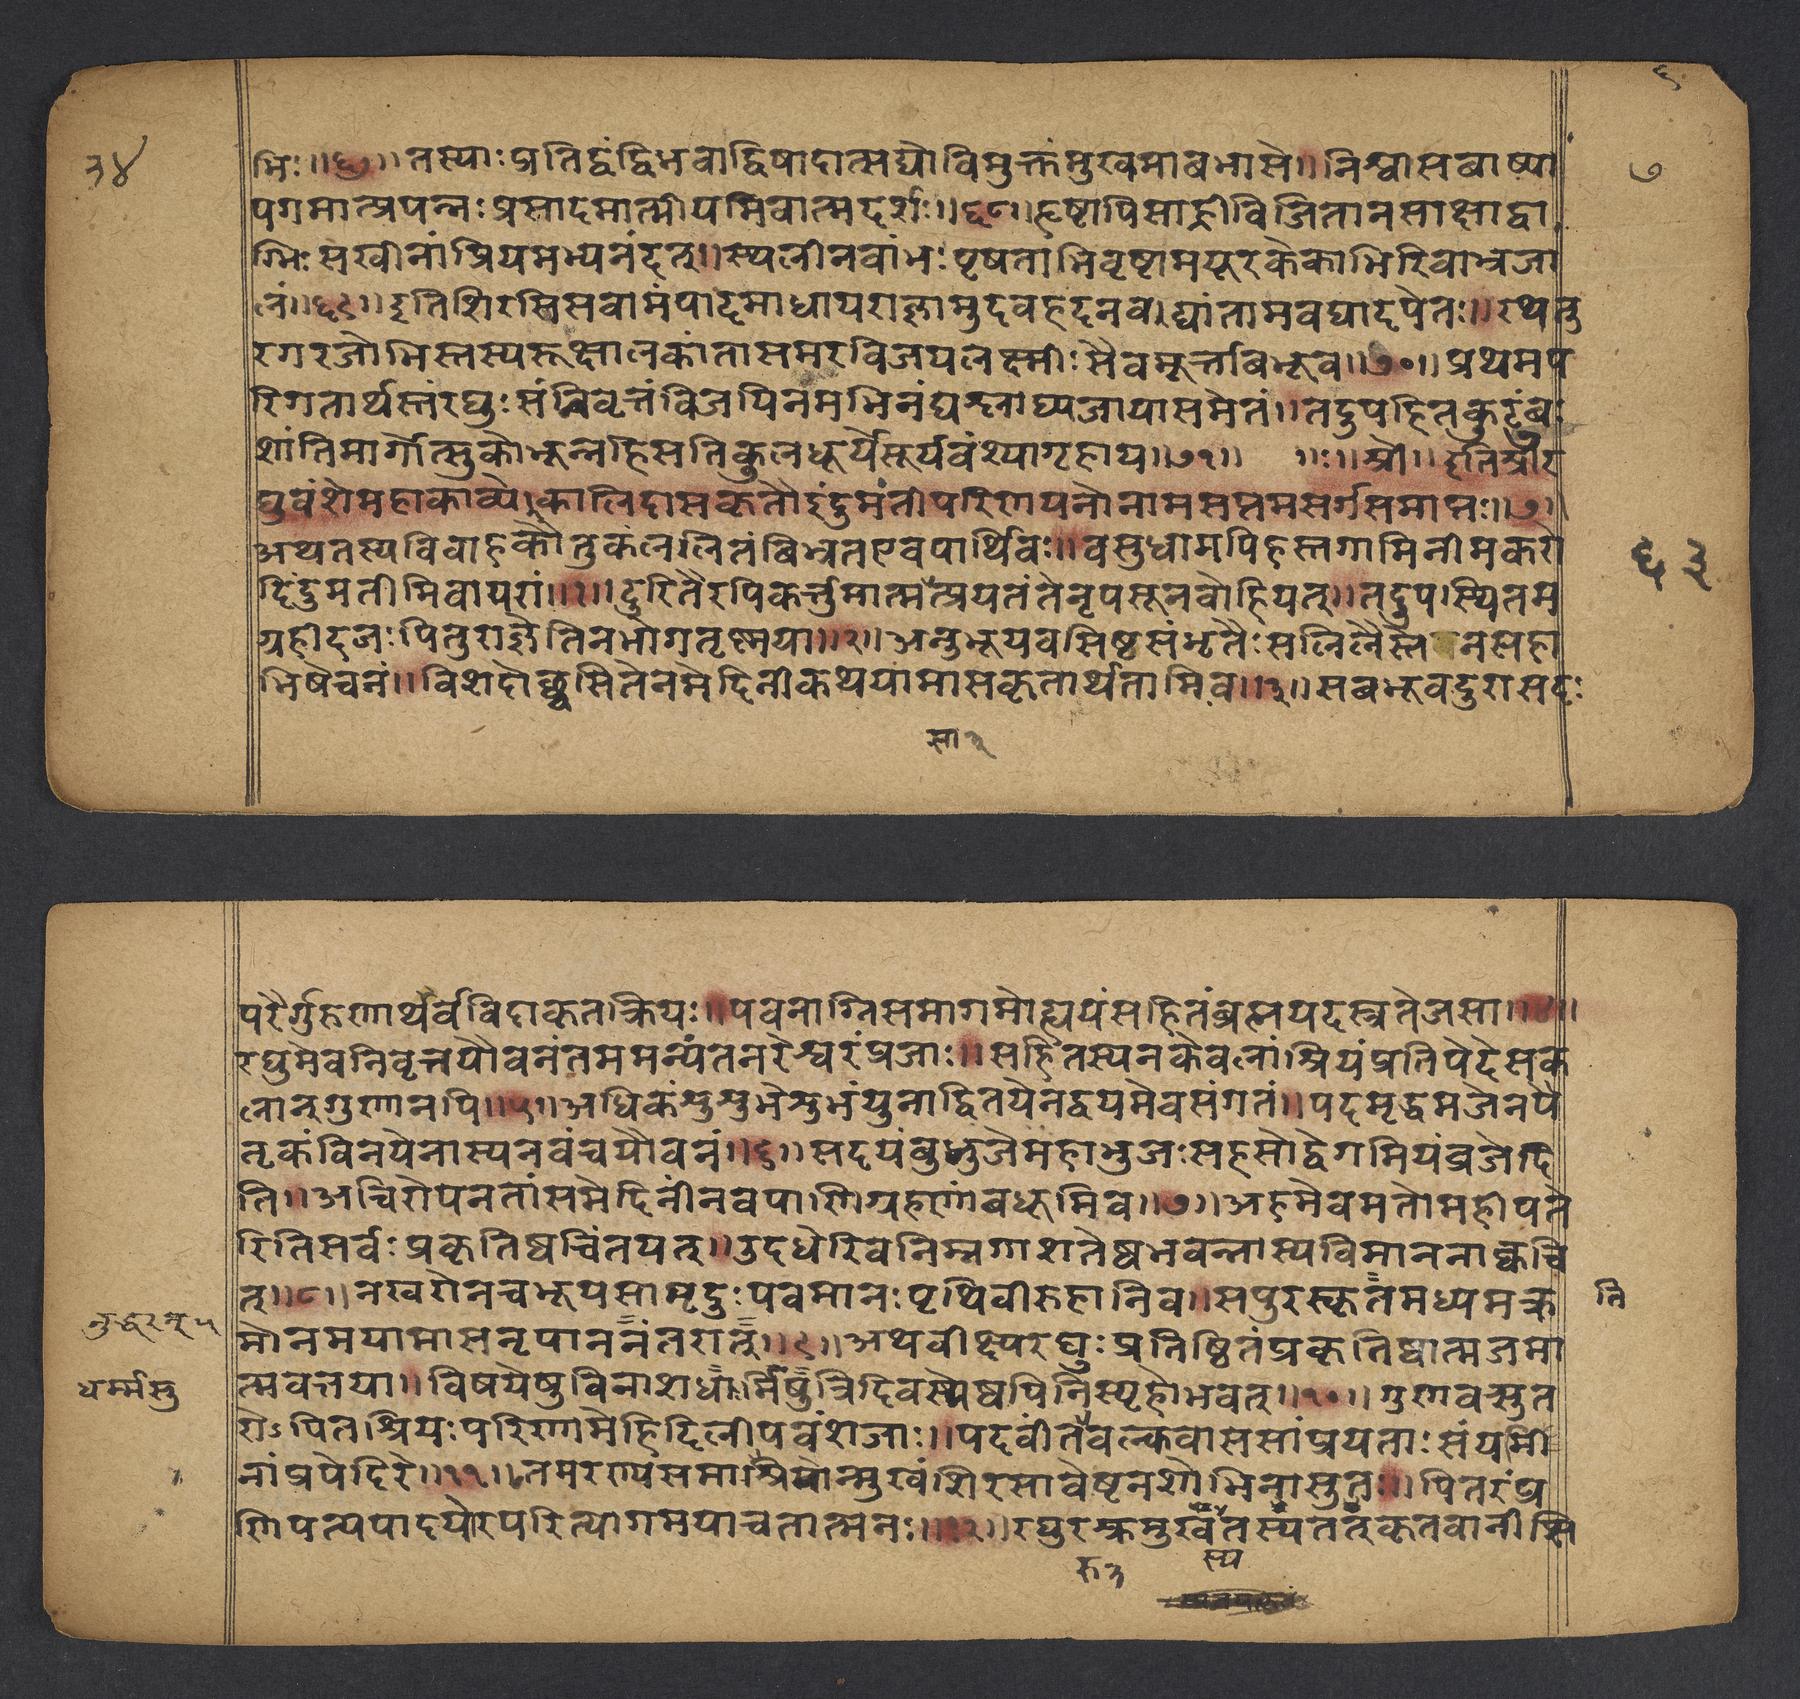 ३४
७
भिः॥६७॥तस्याःप्रतिद्वंद्विभवाद्विषादात्सद्योविमुक्तंमुखमाबभासे॥निश्वासबाष्पा
पगमात्प्रपन्नःप्रसादमात्मीयमिवात्मदर्शः॥६८॥हृष्टापिसाह्रीविजितानसाक्षाद्वा
ग्भिःसखीनांप्रियमभ्यनंदत्॥स्थलीनवांभःपृषताभिवृष्टामयूरकेकाभिरिवाभ्रजा
लं॥६९॥इतिशिरसिसवामंपादमाधायराज्ञामुदवहदनवद्यांतामवद्यादपेतः॥रथतु
रगरजोभिस्तस्यरूक्षालकांतासमरविजयलक्ष्मीःसैवमूर्त्ताबभूव॥७०॥प्रथमप
रिगतार्थस्तंरघुःसंनिवृत्तंविजयिनमभिनंद्यश्लाघ्यजायासमेतं॥तदुपहितकुटुंबः
शांतिमार्गोत्सुकोभून्नहिसतिकुलधूर्येसूर्यवंश्यागृहाय॥७१॥ ॥ः॥श्री॥इतिश्रीर
घुवंशेमहाकाव्येकालिदासकृतौइंदुमतीपरिणयनोनामसप्तमसर्गसमाप्तः॥७॥
अथतस्यविवाहकौतुकंललितंबिभ्रतएवपार्थिवः॥वसुधामपिहस्तगामिनीमकरो
६३
दिंदुमतीमिवापरां॥१॥दुरितैरपिकर्त्तुमात्मसात्प्रयतंतेनृपसूनवोहियत्॥तदुपस्थितम
ग्रहीदजःपितुराज्ञेतिनभोगतृष्णया॥२॥अनुभूयवसिष्ठसंभृतैःसलिलैस्तेनसहा
भिषेचनं॥विशदोच्छ्वसितेनमेदिनीकथयामासकृतार्थतामिव॥३॥सबभूवदुरासदः
सा२
परैर्गुरुणाथर्वविदाकृतक्रियः॥पवनाग्निसमागमोह्ययंसहितंब्रह्मयदस्त्रतेजसा॥४॥
रघुमेवनिवृत्तयौवनंतममन्यंतनरेश्वरंप्रजाः॥सहितस्यनकेवलांश्रियंप्रतिपेदेसक
लान्गुणानपि॥५॥अधिकंशुशुभेशुभंयुनाद्वितयेनद्वयमेवसंगतं॥पदमृद्धमजेनपै
तृकंविनयेनास्यनवंचयौवनं॥६॥सदयंबुभुजेमहाभुजःसहसोद्वेगमियंव्रजेदि
ति॥अचिरोपनतांसमेदिनींनवपाणिग्रहाणांबधूमिव॥७॥अहमेवमतोमहीपते
रितिसर्वःप्रकृतिष्वचिंतयत्॥उदधेरिवनिम्नगाशतेष्वभवन्नास्यविमाननाक्वचि
त्॥८॥नखरोनचभूयसामृदुःपवमानःपृथिवीरुहानिव॥सपुरस्कृतमध्यमक्र
नि
मोनमयामासनृपाननंतरान्॥९॥अथवीक्ष्यरघुःप्रतिष्ठितंप्रकृतिष्वात्मजमा
त्मवत्तया॥विषयेषुविनाशधर्मिषुत्रिदिवस्थेष्वपिनिस्पृहोभवत्॥१०॥गुणवत्सुत
धर्म्मसु
रोऽपितश्रियःपरिणामेहिदिलीपवंशजाः॥पदवींतरुवल्कवाससांप्रयताःसंयमि
नांप्रपेदिरे॥११॥तमरण्यसमाश्रयोन्मुखंशिरसावेष्टनशोभिनासुतः॥पितरंप्र
णिपत्यपादयोरपरित्यागमयाचतात्मनः॥१२॥रघुरश्रुमुखस्यतस्यतत्कृतवानीप्सि
रु३
स्य